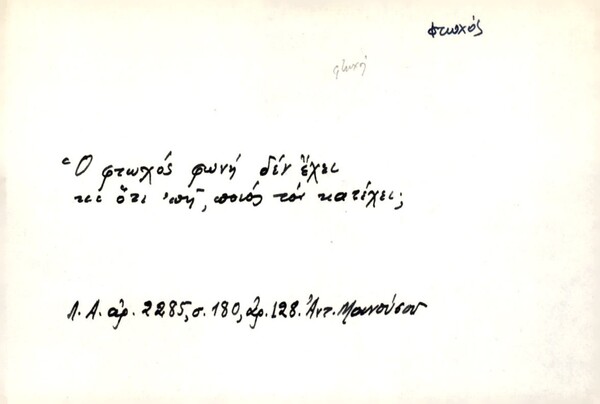 φτωχός
φωνή
Ὁ φτωχός φωνή δέν ἔχει
κι ὅτι 'πῆ, ποιός τόν κατέχει;
Λ. Α. ἀρ. 2285, σ. 180, ἀρ. 128. Ἀντ. Μανούσου